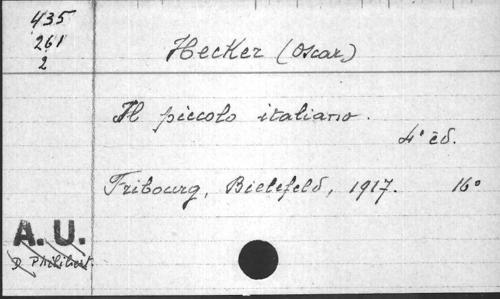 435
261
2
Hecker (Oscar)
Il piccolo italiano.
4° éd.
Fribourg, Bielefeld, 1917. 16°
A. U.
D Philibert.